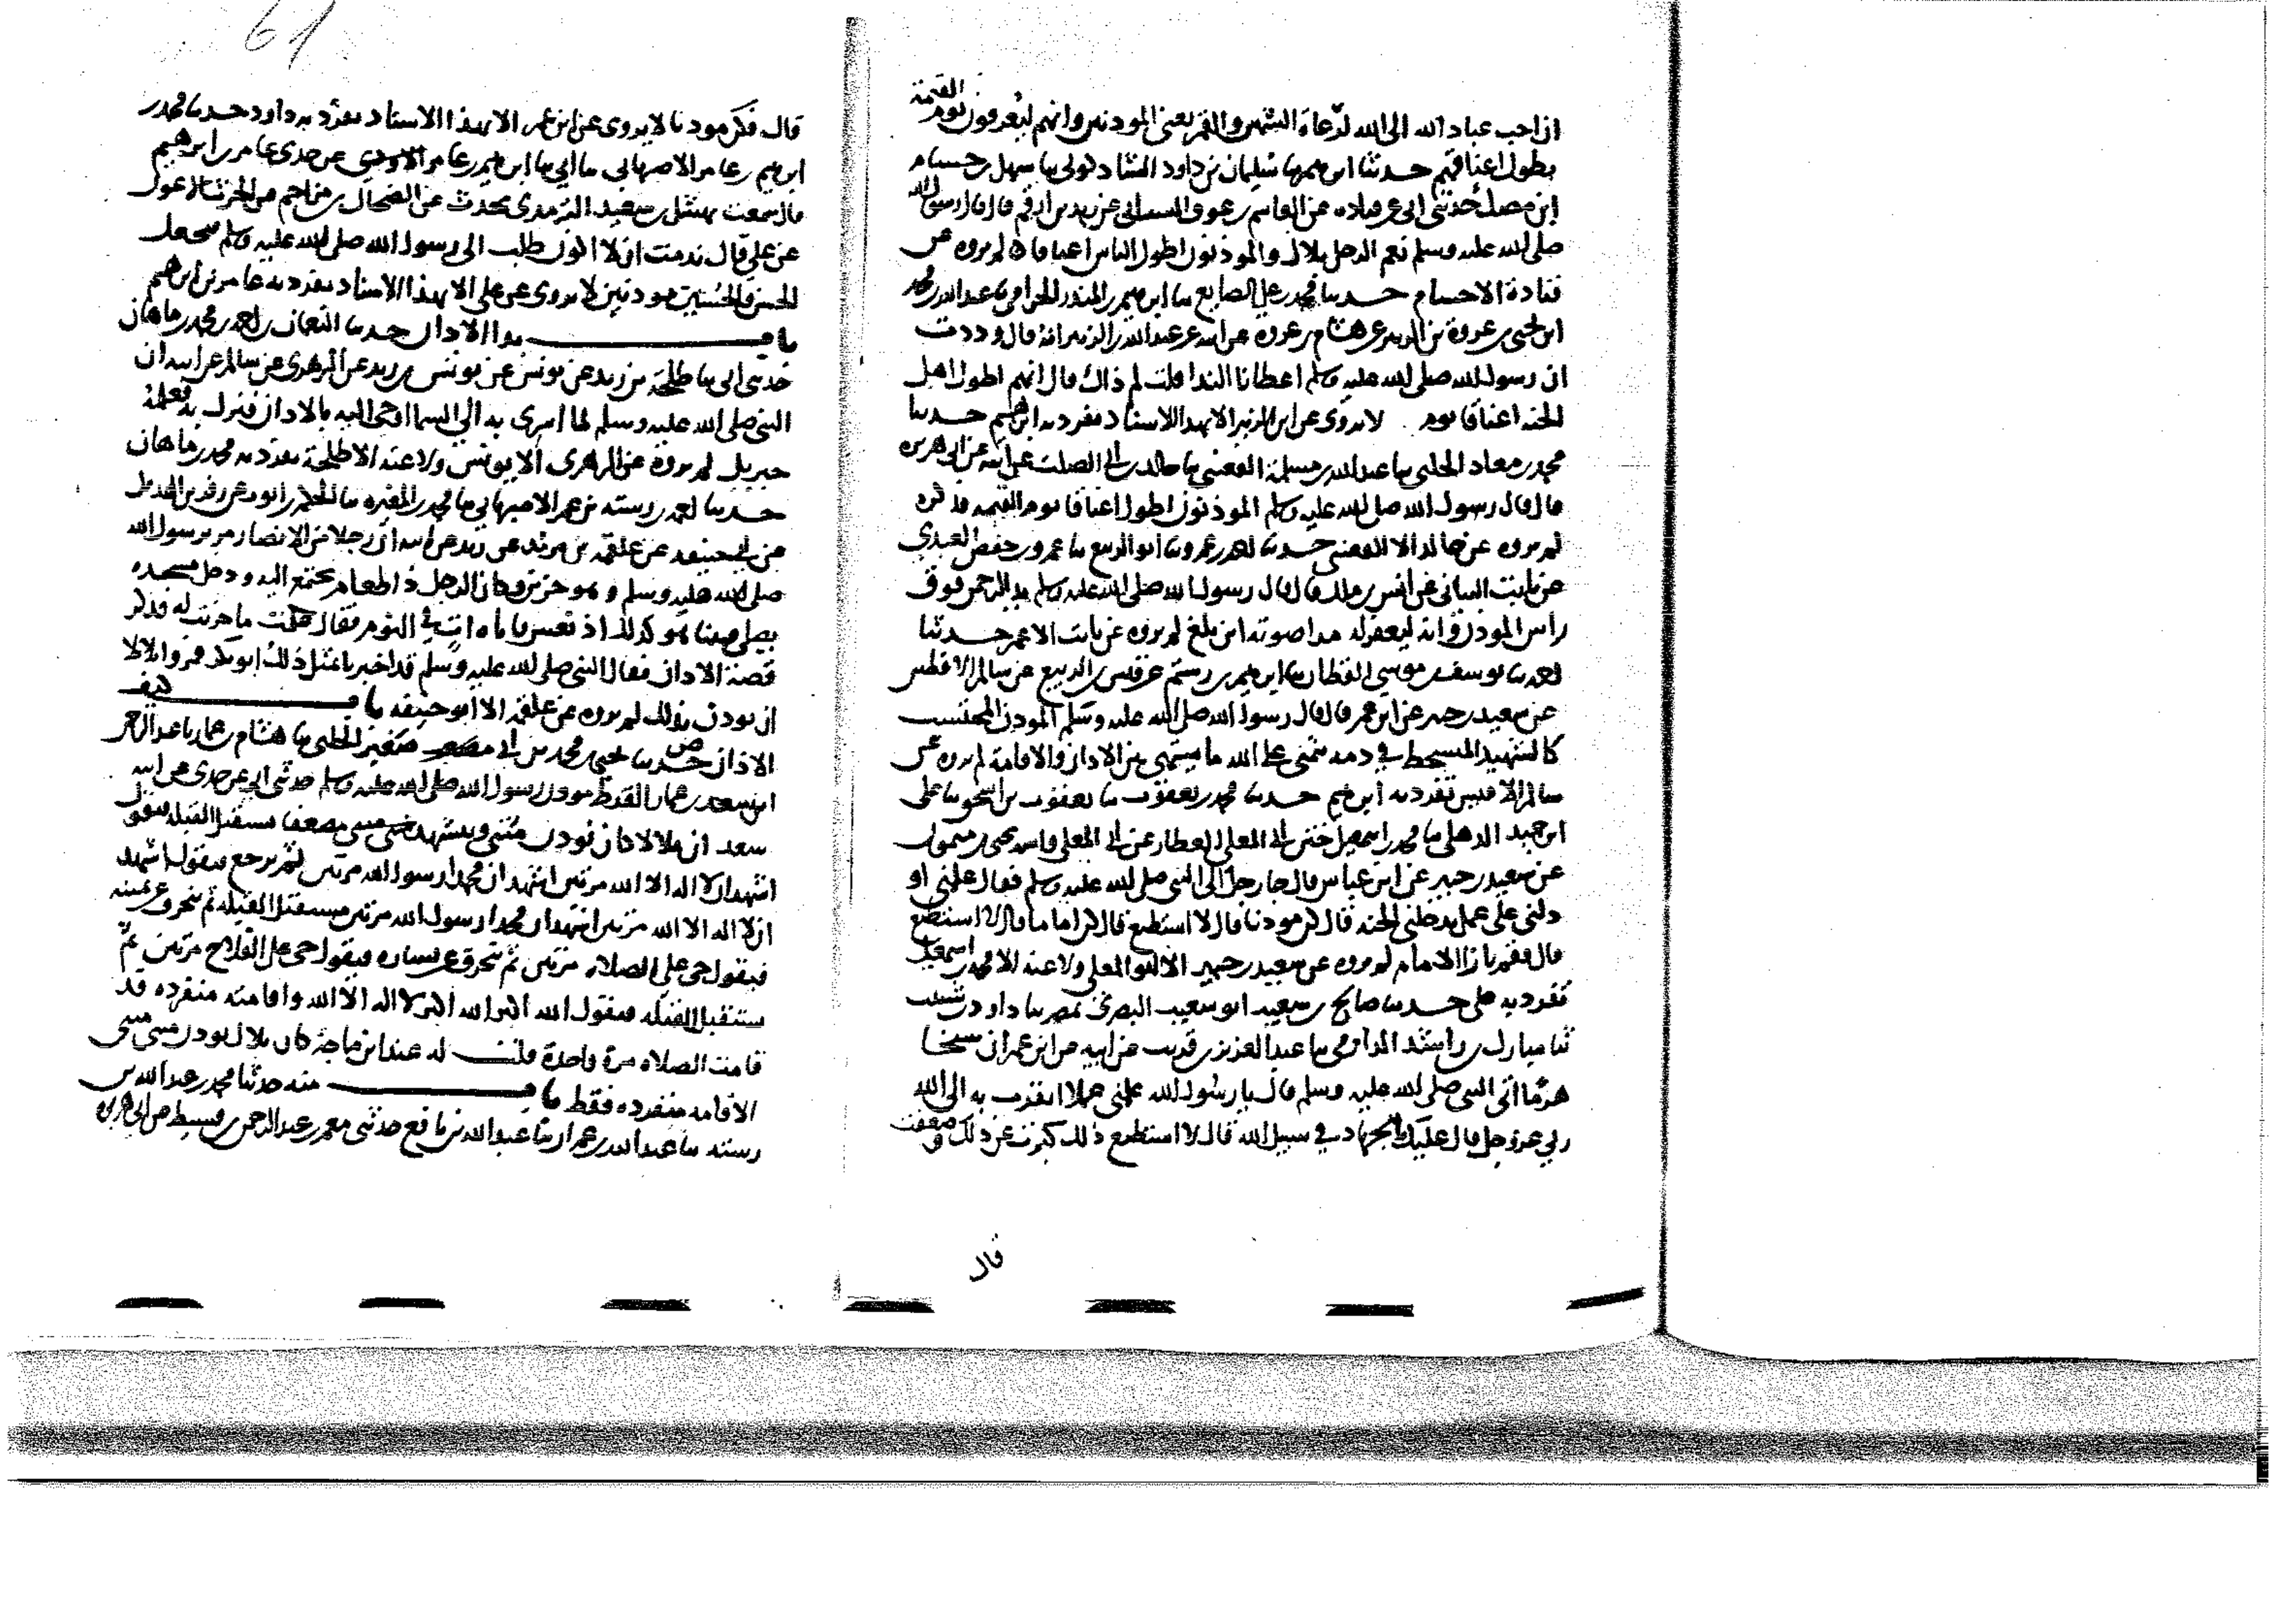 ان احب عباد الله الى الله لرعاة الشمس والقمر يعني المودنين وانهم ليعرفون يوم القيمة
بطول اعناقهم حدثنا ابرهيم ثنا سليمان بن داود الشاد كوني ثنا سهل بن حسام
ابن مصك حدثني ابي عن قتاده عن القاسم بن عوف الشيباني عن زيد بن ارقم قال قال رسول الله
صلى الله عليه وسلم نعم الرجل بلال والموذنون اطول الناس اعناقا لم يروه عن
قتادة الا حسام حدثنا محمد بن علي الصايغ ثنا ابرهيم بن المنذر الحزامي ثنا عبد الله بن محمد
ابن يحيى بن عروة بن الزبير عن هشام بن عروة عن ابيه عن عبد الله بن الزبير انه قال وددت
ان رسول الله صلى الله عليه وسلم اعطانا الندا قلت لم ذاك قال انهم اطول اهل
الجنه اعناقا يوم لا يروى عن ابن الزبير الا بهذا الاسناد تفرد به ابرهيم حدثنا
محمد بن معاد الحلبي ثنا عبد الله بن مسلمة القعنبي ثنا خالد بن ابي الصلت عن ابيه عن ابي هريره
قال قال رسول الله صلى الله عليه وسلم الموذنون اطول اعناقا يوم القيمه
لم يروه عن خالد الا القعنبي حدثنا احمد بن عمرو ثنا ابو الربيع ثنا عمرو بن حفص العبدي
عن ثابت البناني عن انس بن ملك قال قال رسول الله صلى الله عليه وسلم يد الرحمن فوق
راس الموذن وانه ليغفر له مدا صوته اين بلغ لم يروه عن ثابت الا عمر حدثنا
احمد ثنا يوسف بن موسى القطان ثنا ابرهيم بن رستم عن قيس بن الربيع عن سالم الافطس
عن سعيد بن جبير عن ابن عمر قال قال رسول الله صلى الله عليه وسلم المودن المحتسب
كالشهيد المتشحط في دمه يتمنى على الله ما يشتهي بين الاذان والاقامة لم يروه عن
سالم الا قيس تفرد به ابرهيم حدثنا محمد بن يعقوب ثنا يعقوب بن اسحق ثنا علي
ابن حميد الدهلي ثنا محمد بن اسمعيل ختن ابي المعلى العطار عن ابي المعلى واسمه يحيى بن ميمون
عن سعيد بن جبير عن ابن عباس قال جا رجل الى النبي صلى الله عليه وسلم فقال علمني او
دلني على عمل يدخلني الجنه قال كن موذنا قال لا استطيع قال كن اماما قال لا استطيع
قال فقم بازا الامام لم يروه عن سعيد بن جبير الا ابو المعلى ولا عنه الا محمد بن اسمعيل
تفرد به علي حدثنا صالح بن سعيد ابو سعيد البصري بمصر ثنا داود بن شبيب
ثنا مبارك بن راشد الدارمي ثنا عبد العزيز بن قريب عن ابيه عن ابن عمر ان شيخا
هرما اتى النبي صلى الله عليه وسلم قال يا رسول الله علمني عملا اتقرب به الى الله
ربي عز وجل قال عليك بالجهاد في سبيل الله قال لا استطيع ذلك كبرت عن ذلك وضعفت
قال
61
قال فكن موذنا لا يروى عن ابن عمر الا بهذا الاسناد تفرد به داود حدثنا محمد بن
ابرهيم بن عامر الاصبهاني ثنا ابي ثنا ابرهيم بن عامر عن جدي عامر بن ابرهيم
قال سمعت نهشل بن سعيد الترمذي يحدث عن الضحاك بن مزاحم عن الحرث الاعور
عن علي قال ندمت ان لا اكون طلبت الى رسول الله صلى الله عليه وسلم فيجعل
الحسن والحسين موذنين لا يروى عن علي الا بهذا الاسناد تفرد به عامر بن ابرهيم
باب بدو الاذان حدثنا النعمان بن احمد بن محمد بن ماهان
حدثني ابي ثنا طلحة بن زيد عن يونس عن يونس بن يزيد عن الزهري عن سالم عن ابيه ان
النبي صلى الله عليه وسلم لما اسري به الى السما اوحي اليه بالاذان فنزل به فعلمه
جبريل لم يروه عن الزهري الا يونس ولا عنه الا طلحة تفرد به محمد بن ماهان
حدثنا احمد بن رسته بن عمر الاصبهاني ثنا محمد بن المغيره ثنا الحكم بن ايوب عن زفر بن الهذيل
عن ابي حنيفه عن علقمه بن مرثد عن بن بريده عن ابيه ان رجلا من الانصار مر برسول الله
صلى الله عليه وسلم وهو حزين وكان الرجل ذا طعام يجتمع اليه ودخل مسجده
يصلي فبينا هو كذلك اذ نعس فاتاه ات في النوم فقال علمت ما حزنت له فذكر
قصة الاذان فقال النبي صلى الله عليه وسلم قد اخبرنا بمثل ذلك ابو بكر فمروا بلالا
ان يوذن بذلك لم يروه عن علقمه الا ابو حنيفه باب كيف
الاذان حدثنا يحيى بن محمد بن ابي صغير الحلبي ثنا هشام بن عمار ثنا عبد الرحمن
ابن سعد بن عمار القرظ موذن رسول الله صلى الله عليه وسلم حدثني ابي عن جدي عن ابيه
سعد ان بلالا كان يوذن مثنى ويتشهد مستقبل القبله فيقول
اشهد ان لا اله الا الله مرتين اشهد ان محمدا رسول الله مرتين ثم يرجع فيقول اشهد
ان لا اله الا الله مرتين اشهد ان محمدا رسول الله مرتين مستقبل القبله ثم ينحرف عن يمينه
فيقول حي على الصلاه مرتين ثم ينحرف عن يساره فيقول حي على الفلاح مرتين ثم
يستقبل القبله فيقول الله اكبر الله اكبر لا اله الا الله واقامته منفرده قد
قامت الصلاه مرة واحدة قلت له عند ابن ماجه كان بلال يوذن مثنى مثنى
الاقامه منفرده فقط باب منه حدثنا محمد بن عبد الله بن
رسته ثنا عبد الله بن عمران ثنا عبد الله بن نافع حدثني معمر بن عبد الرحمن بن قسيط عن ابي هريره